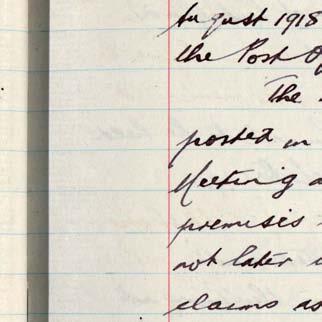 August 1918
the Post O
The
posted in
Meeting a
premises
not later
claims as